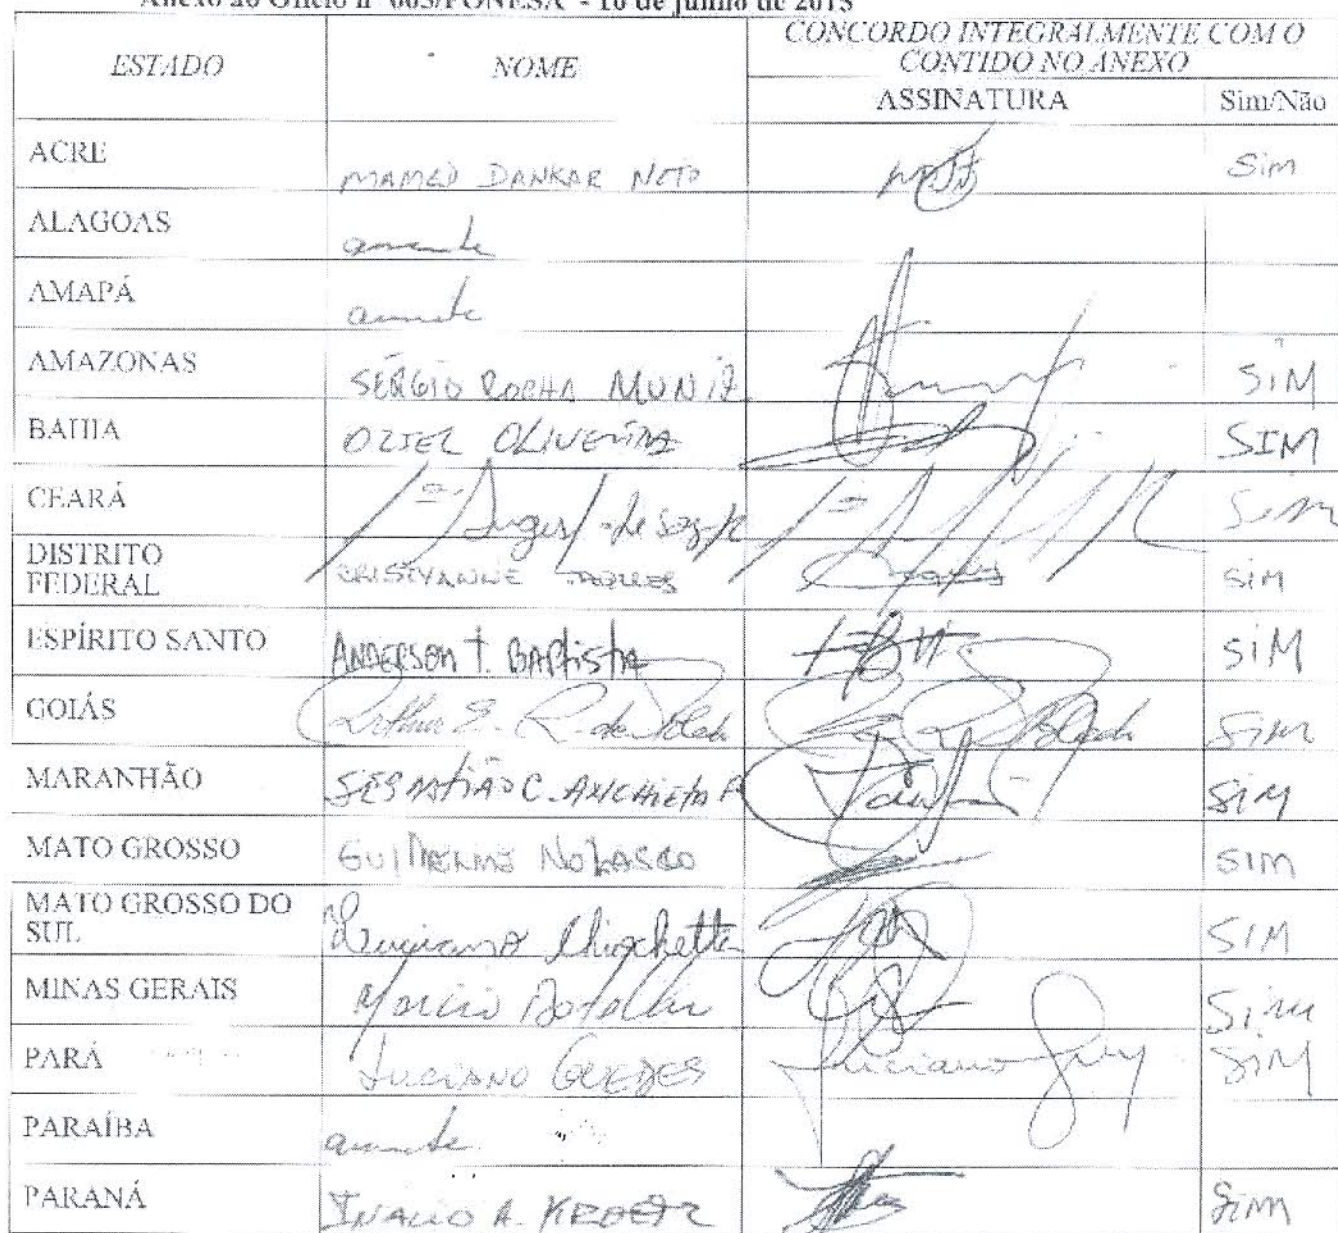 Anexo ao Ofício nº 003/FONESA - 10 de junho de 2015
ESTADO NOME CONCORDO INTEGRALMENTE COM O
CONTIDO NO ANEXO
ASSINATURA Sim/Não
ACRE MAMED DANKAR NETO Sim
ALAGOAS ausente
AMAPÁ ausente
AMAZONAS SÉRGIO ROCHA MUNIZ SIM
BAHIA OZIEL OLIVEIRA SIM
CEARÁ Sim
DISTRITO
FEDERAL CRISTYANNE TORRES SIM
ESPÍRITO SANTO ANDERSON T. BAPTISTA SIM
GOIÁS Arthur E. de Toledo Sim
MARANHÃO SEBASTIÃO C. ANCHIETA F SIM
MATO GROSSO GUILHERME NOLASCO SIM
MATO GROSSO DO
SUL Luciano Chiochetta SIM
MINAS GERAIS Marcio Botelho Sim
PARÁ LUCIANO GUEDES Luciano SIM
PARAÍBA ausente
PARANÁ INACIO A. KROETZ SIM